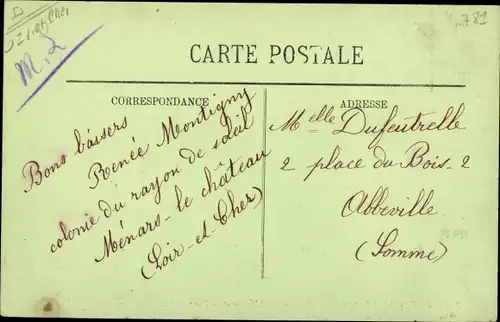 D
781
M. L
CARTE POSTALE
CORRESPONDANCE
Bons baisers
Renée Montigny
colonie du rayon de soleil
Ménars-le château
(Loir-et-Cher)
ADRESSE
Melle Dufeutrelle
2 place du Bois-2
Abbeville
(Somme)